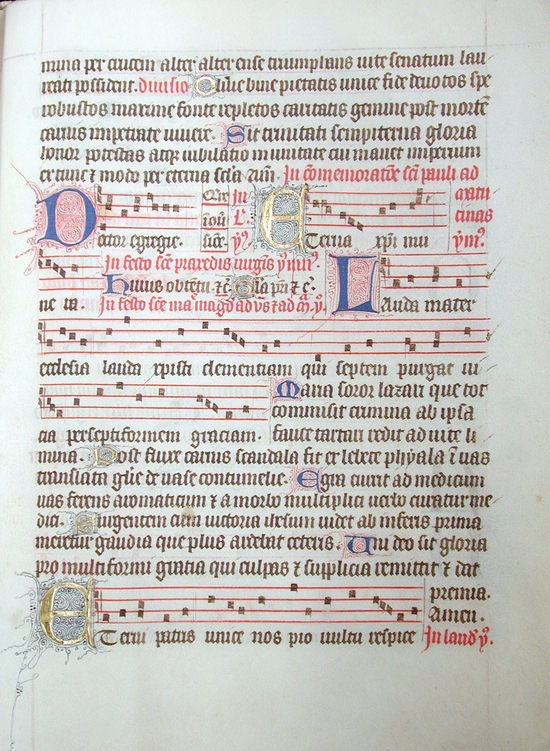 mina per crucem alter alter ense triumphans uite senatum lau
reati possident. diuisio Oliue bine pietatis unice fide deuotos spe
robustos maxime fonte repletos caritatis gemine post mortē
carnis impetrate uiuere. Sit trinitati sempiterna gloria
honor potestas atq; iubilatio in unitate cui manet imperium
ex tunc ⁊ modo per eterna scl̄a am̄. In cōmemoratōe sc̄i pauli ad
Doctor egregie. Eterna xp̄i mu
In festo sc̄e praxedis uirgīs ymꝰ.
Huius obtētu ⁊c̄. Gl̄a pr̄i ⁊ c̄. Lauda mater
In festo sc̄e ma. magd̄ ad vs̄ ⁊ ad m̄. y.
ecclesia lauda xpisti clementiam qui septem purgat ui
cia per septiformem graciam. Maria soror lazari que tot
commisit crimina ab ipsa
fauce tartari redit ad uite li
mina. Post fluxe carnis scandala fit ex lebete phyala ī uas
translata glīe de uase contumelie. Egra currit ad medicum
uas ferens aromaticum ⁊ a morbo multiplici uerbo curatur me
dici. Surgentem cum uictoria ihesum uidet ab inferis prima
meretur gaudia que plus ardebat ceteris. Uni deo sit gloria
pro multiformi gratia qui culpas ⁊ supplicia remittit ⁊ dat
premia.
Amen.
Eterni patris unice nos pio uultu respice In laud̄ y.